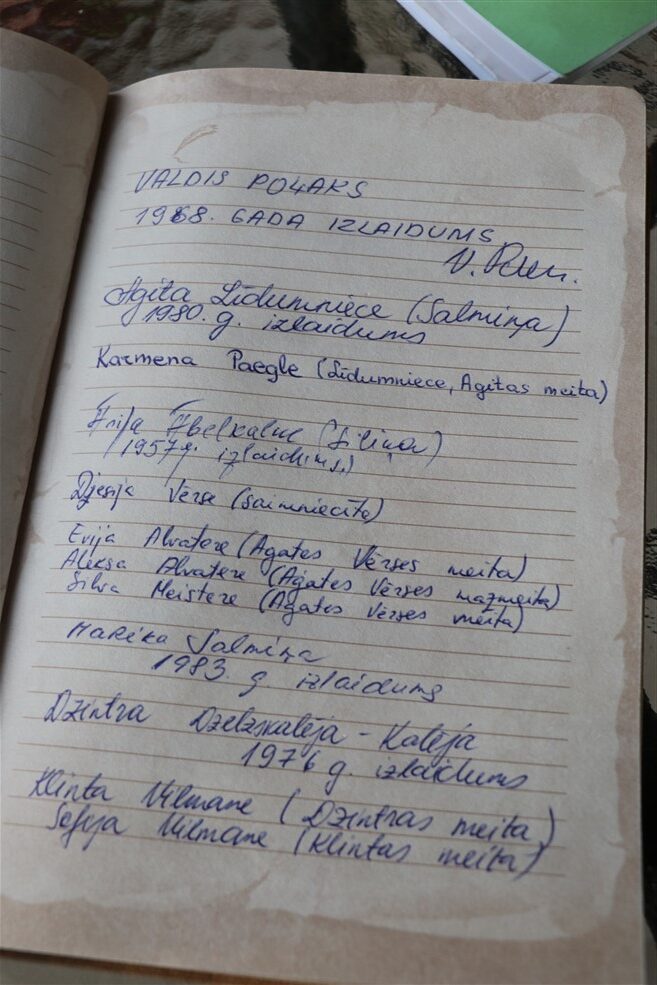 VALDIS POĻAKS
1968. GADA IZLAIDUMS
Agita Līdumniece (Salmiņa)
1980. g. izlaidums
Karmena Paegle (Līdumniece, Agitas meita)
Ābelkalne
1957. g. izlaidums)
Vērse (saimniecīte)
Evija Alvatere (Agates Vērses meita)
Aleksa Alvatere (Agates Vērses mazmeita)
Silva Meistere (Agates Vērses meita)
Marika Salmiņa
1983. g. izlaidums
Dzintra Dzelzskalēja - Kalēja
1976 g. izlaidums
Klinta Vilmane (Dzintras meita)
Sofija Vilmane (Klintas meita)